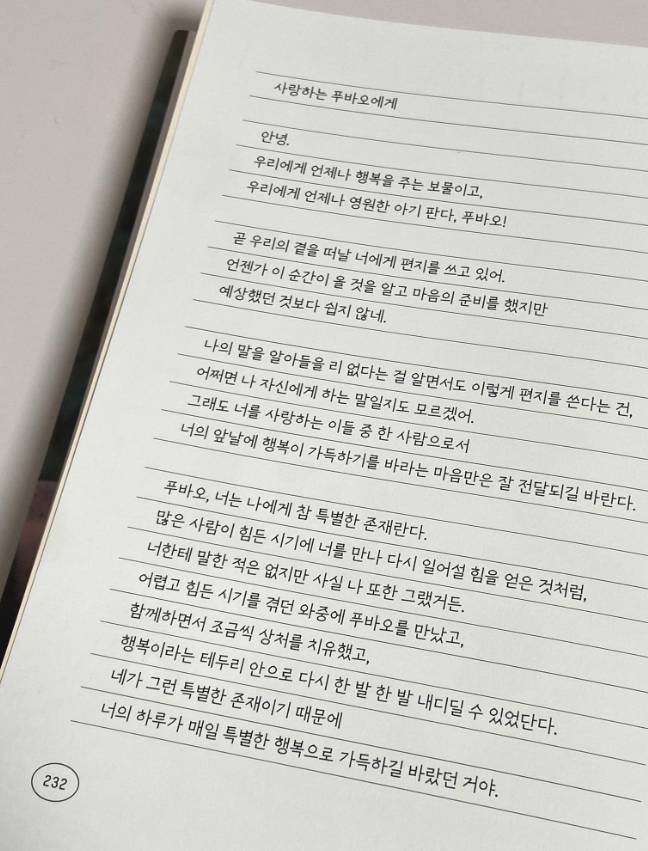 사랑하는 푸바오에게
안녕.
우리에게 언제나 행복을 주는 보물이고,
우리에게 언제나 영원한 아기 판다, 푸바오!
곧 우리의 곁을 떠날 너에게 편지를 쓰고 있어.
언젠가 이 순간이 올 것을 알고 마음의 준비를 했지만
예상했던 것보다 쉽지 않네.
나의 말을 알아들을 리 없다는 걸 알면서도 이렇게 편지를 쓴다는 건,
어쩌면 나 자신에게 하는 말일지도 모르겠어.
그래도 너를 사랑하는 이들 중 한 사람으로서
너의 앞날에 행복이 가득하기를 바라는 마음만은 잘 전달되길 바란다.
푸바오, 너는 나에게 참 특별한 존재란다.
많은 사람이 힘든 시기에 너를 만나 다시 일어설 힘을 얻은 것처럼,
너한테 말한 적은 없지만 사실 나 또한 그랬거든.
어렵고 힘든 시기를 겪던 와중에 푸바오를 만났고,
함께하면서 조금씩 상처를 치유했고,
행복이라는 테두리 안으로 다시 한 발 한 발 내디딜 수 있었단다.
네가 그런 특별한 존재이기 때문에
너의 하루가 매일 특별한 행복으로 가득하길 바랐던 거야.
232